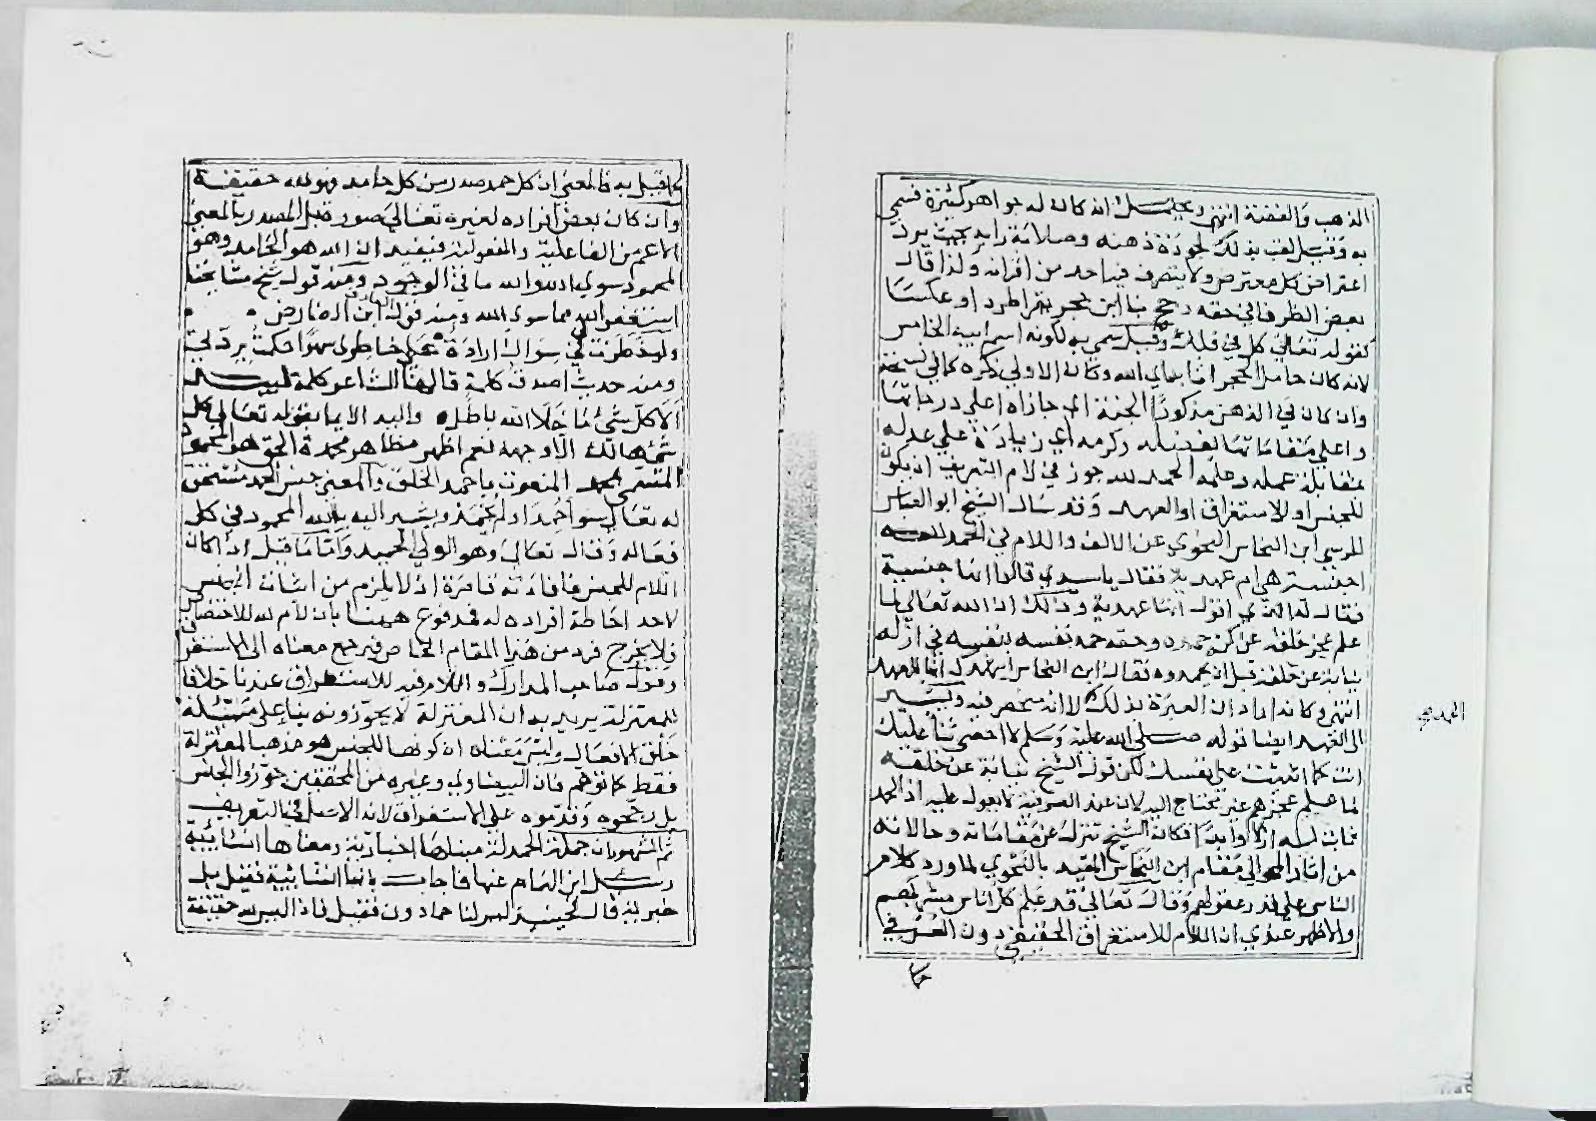 الذهب والفضة انتهى ويحتمل انه كان له جواهر كثيرة فسمي
به وقيل لقب بذلك لجودة ذهنه وصلابة رايه بحيث يرد
اعتراض كل معترض ولا يتصرف فيه احد من اقرانه ولذا قال
بعض الظرفا في حقه حجر بنا ابن حجر يقرا طردا وعكسا
كقوله تعالى كل في فلك وقيل سمي به لكونه اسم ابيه الخامس
لانه كان حامل الحجر
وان كان في الذهن مذكورا الجنة اي جازاه اعلى درجاتها
واعلى مقاماتها بفضله وكرمه اي زيادة على عدله
بمقابلة عمله وعلمه الحمد لله جوز في لام التعريف ان يكون
للجنس او للاستغراق او للعهد وقد سال الشيخ ابو العباس
المرسي ابن النحاس النحوي عن الالف واللام في الحمد لله
اجنسية هي ام عهدية فقال ياسيدي قالوا انها جنسية
فقال له الذي اقول انها عهدية وذلك ان الله تعالى لما
علم عجز خلقه عن كنه حمده حمد نفسه بنفسه في ازله
نيابة عن خلقه قبل ان يحمدوه فقال ابن النحاس اشهدك انها للعهد
انتهى وكانه اراد ان العبرة بذلك لا انه منحصر فيه ويشير
الى العهد ايضا قوله صلى الله عليه وسلم لا احصي ثناء عليك
انت كما اثنيت على نفسك لكن قول الشيخ نيابة عن خلقه
لما علم عجزهم غير محتاج اليه لان عند الصوفية لا يعول عليه اذ الحمد
ثابت له ازلا وابدا فكان الشيخ تنزل عن مقاماته وحالاته
الى مقام ابن النحاس المقيد بالنحوي لما ورد كلام
الناس على قدر عقولهم وقال تعالى قد علم كل اناس مشربهم
والاظهر عندي ان اللام للاستغراق الحقيقي دون العرفي
كما قيل به فالمعنى ان كل حمد صدر من كل حامد فهو لله حقيقة
وان كان بعض افراده لغيره تعالى صورة قيل المصدر بالمعنى
الاعم من الفاعلية والمفعولية فيفيد ان الله هو الحامد وهو
المحمود سوى الله والله ما في الوجود ومنه قول شيخ مشايخنا
استغفر الله مما سوى الله ومنه قول العارف ابن الفارض
ولو خطرت لي في سواك ارادة على خاطري سهوا حكمت بردتي
ومنه حديث اصدق كلمة قالها الشاعر كلمة لبيد
الا كل شئ ما خلا الله باطل واليه الايما بقوله تعالى كل
شئ هالك الا وجهه نعم اظهر مظاهر محمدة الحق هو المحمود
المسمى بمحمد المنعوت باحمد الخلق والمعنى جنس الحمد مستحق
له تعالى سوا حمد او لم يحمد ويشير اليه بانه المحمود في كل
فعاله وقال تعالى وهو الولي الحميد واما ما قيل اذا كان
اللام للجنس فافادته قاصرة اذ لا يلزم من اثبات الجنس
لاحد احاطة افراده له فمدفوع ههنا بان لام لله للاختصاص
فلا يخرج فرد من هذا المقام الخاص فيرجع معناه الى الاستغراق
وقول صاحب المدارك واللام فيه للاستغراق عندنا خلافا
للمعتزلة يريد به ان المعتزلة لا يجوزونه بناء على مسئلة
خلق الافعال وليس معناه ان كونها للجنس هو مذهب المعتزلة
فقط كما توهم فان البيضاوي وغيره من المحققين جوزوا الجنس
بل رجحوه وقدموه على الاستغراق لانه الاصل في التعريف
ثم المشهور ان جملة الحمدلة مبناها اخبارية ومعناها انشائية
وسئل ابن الهمام عنها فاجاب بانها انشائية فقيل بل
خبرية
حا